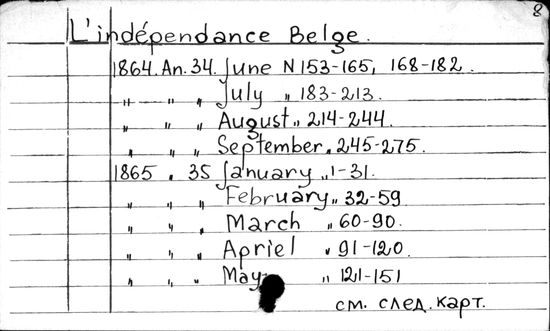 8
L'indépendance Belge.
1864. An. 34. June N 153-165, 168-182.
" " " July " 183-213.
" " " August " 214-244.
" " " September " 245-275.
1865 " 35 January " 1-31.
" " " February " 32-59
" " " March " 60-90.
" " " Apriel " 91-120.
" " " May " 121-151
см. след. карт.